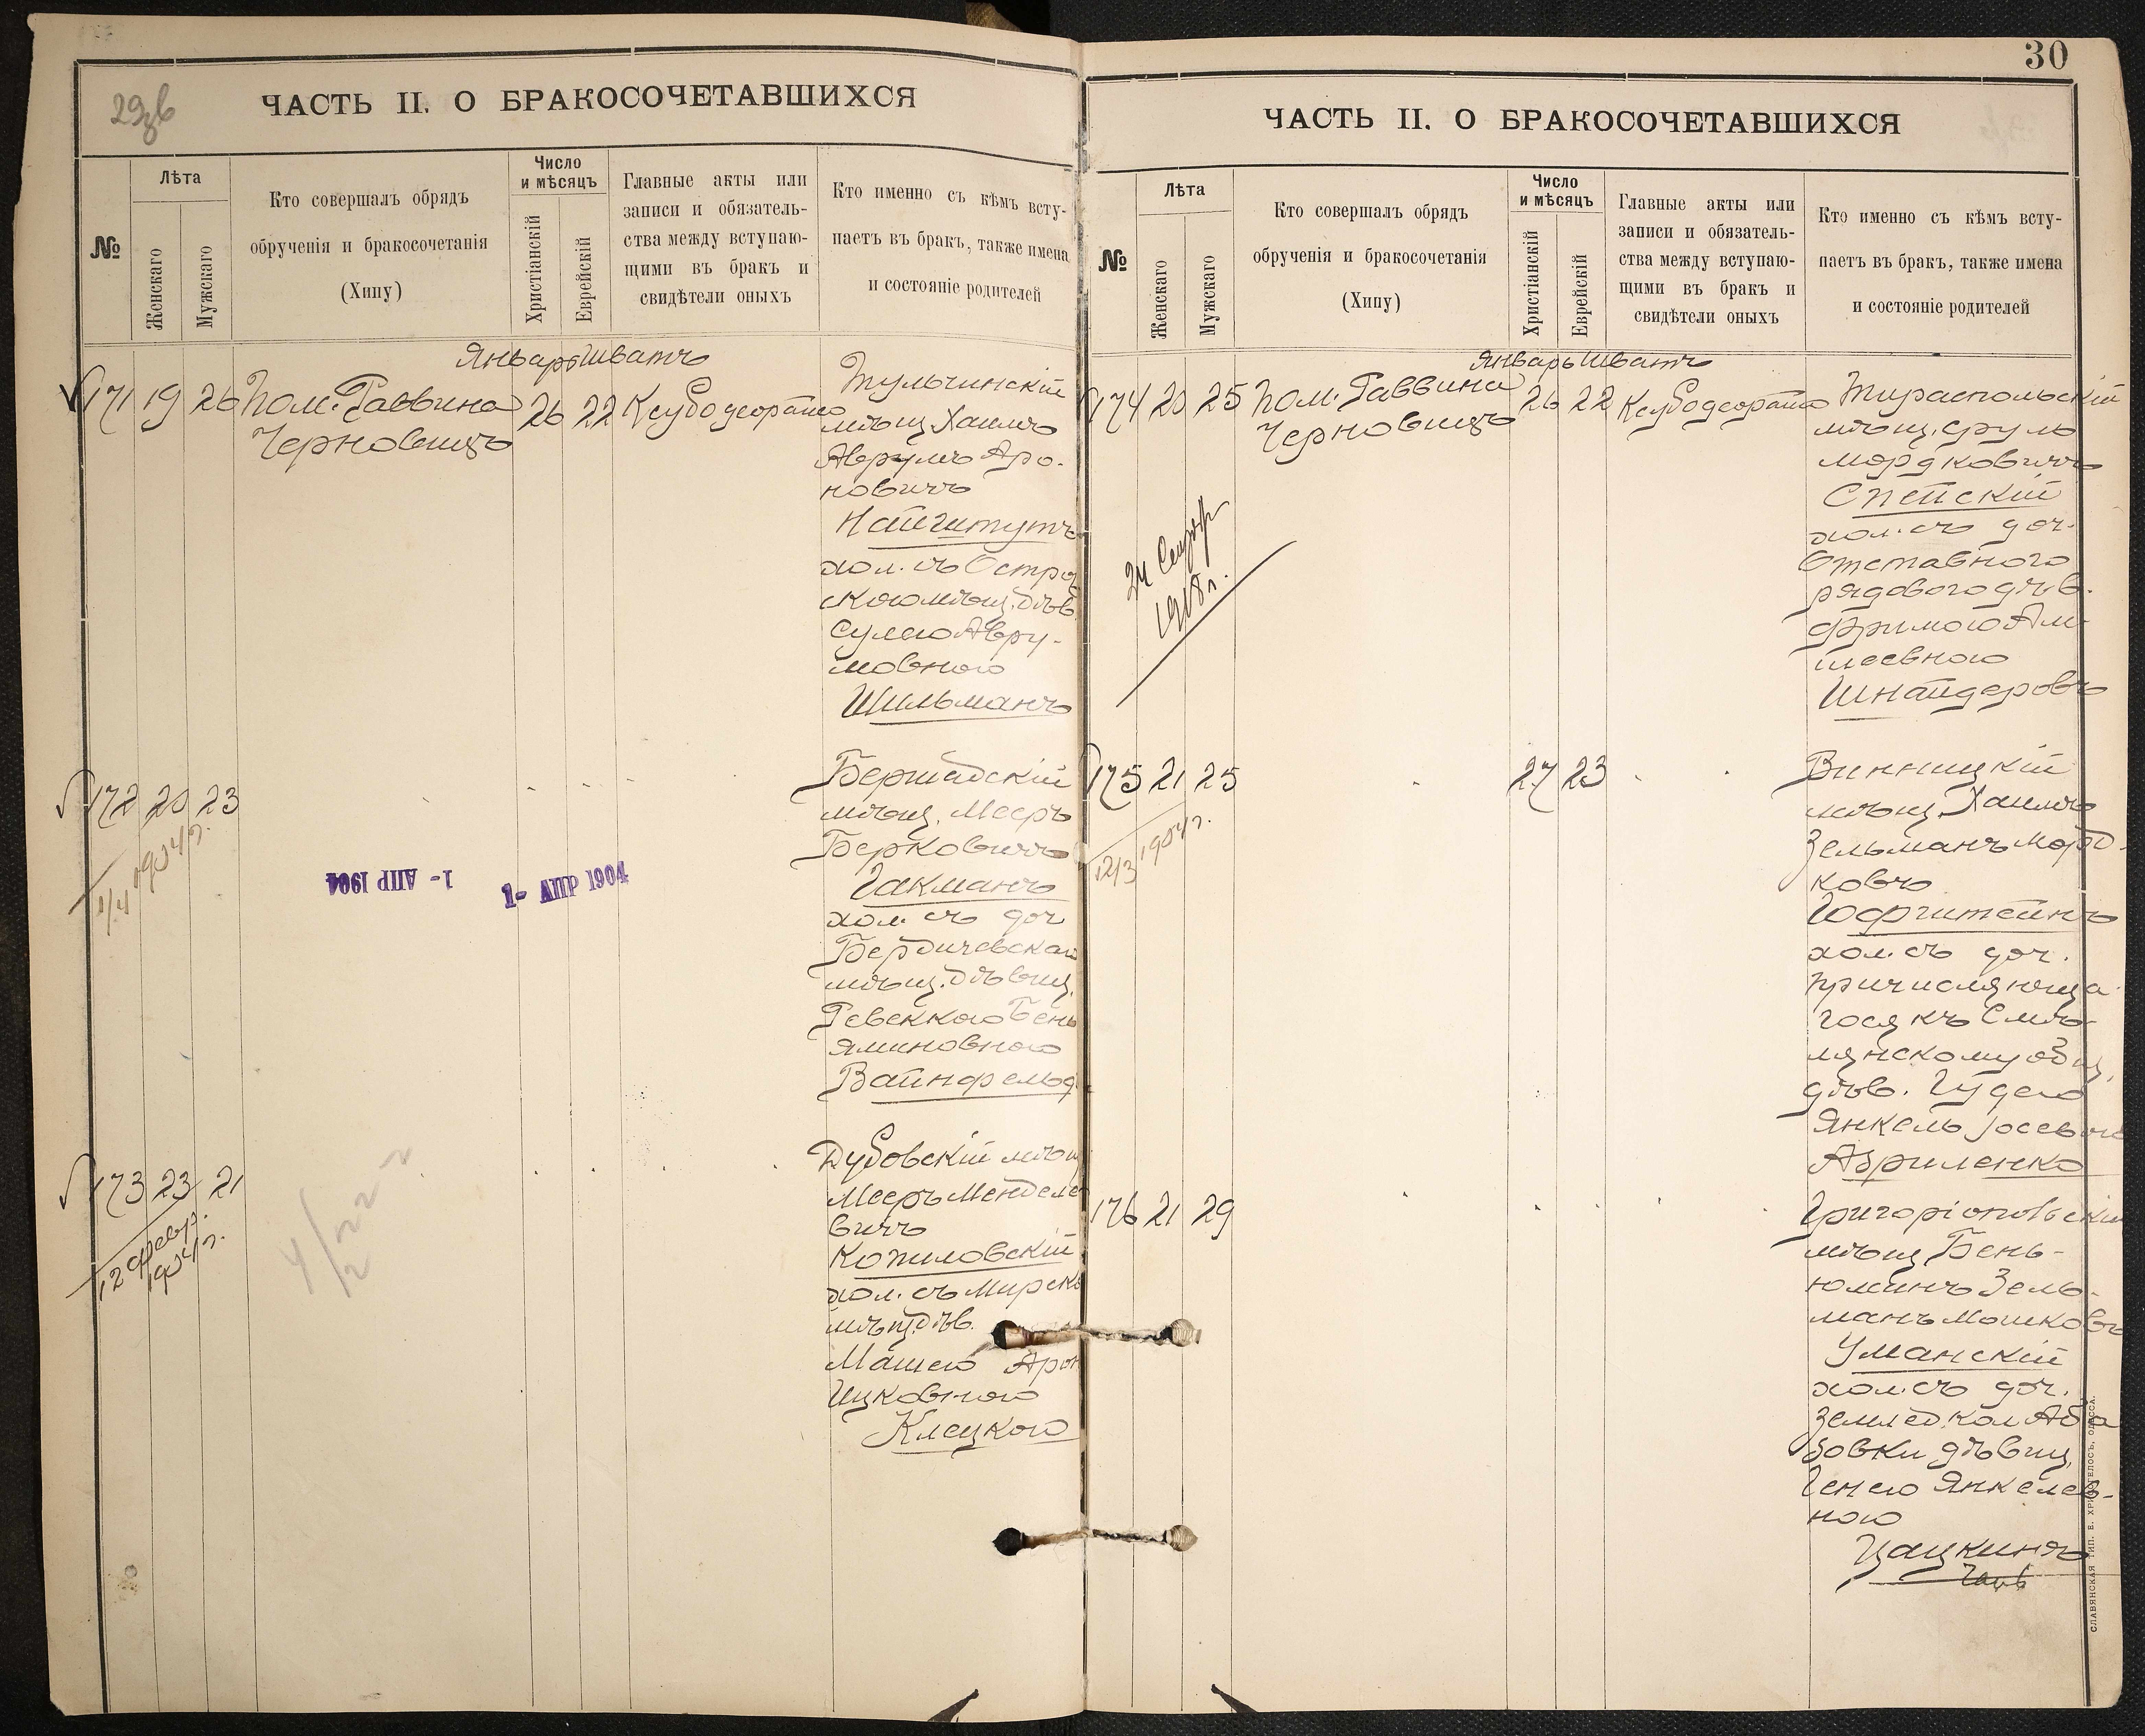 29зв
ЧАСТЬ II. О БРАКОСОЧЕТАВШИХСЯ
№
Лѣта
Женскаго
Мужскаго
Кто совершалъ обрядъ
обрученія и бракосочетанія
(Хипу)
Число
и мѣсяцъ
Христіанскій
Еврейскій
Главные акты или
записи и обязатель-
ства между вступаю-
щими въ бракъ и
свидѣтели оныхъ
Кто именно съ кѣмъ всту-
паетъ въ бракъ, также имена
и состояніе родителей
Январь Шватъ
171 19 26 Пом. Раввина
Черновицъ
26 22
Тульчинскій
мѣщ. Хаимъ
Аврумъ Аро-
новичъ
Найштутъ
хол. съ Остро
скою мѣщ. дѣв.
Сулею Авру-
мовною
Шильманъ
172 20 23
1/4 1904 г.
1- АПР 1904
1- АПР 1904
Бершадскій
мѣщ. Мееръ
Берковичъ
Гакманъ
хол. съ доч
Бердичевскаго
мѣщ. дѣвиц.
Ревеккою Бень
яминовною
Вайнфельд
173 23 21
12 февр.
1904 г.
Дубовскій мѣщ
Мееръ Менделе
вичъ
Копиловскій
хол. съ Мирск
мѣщ. дѣв.
Машею Арон
Ицковною
Клецкою
30
ЧАСТЬ II. О БРАКОСОЧЕТАВШИХСЯ
№
Лѣта
Женскаго
Мужскаго
Кто совершалъ обрядъ
обрученія и бракосочетанія
(Хипу)
Число
и мѣсяцъ
Христіанскій
Еврейскій
Главные акты или
записи и обязатель-
ства между вступаю-
щими въ бракъ и
свидѣтели оныхъ
Кто именно съ кѣмъ всту-
паетъ въ бракъ, также имена
и состояніе родителей
Январь Шватъ
174 20 25 Пом. Раввина
Черновицъ
26 22
Тираспольскій
мѣщ. Сруль
Мордковичъ
Спейскій
хол. съ доч.
Отставного
рядового дѣв.
Фримою Ам-
шеевною
Шнайдеровъ
175 21 25
27 23
12/3 1904 г.
Винницкій
мѣщ. Хаимъ
Зельманъ Морд-
ковъ
Гофштейнъ
хол. съ доч.
причисляюща-
гося къ Смѣ-
лянскому общ.
дѣв. Гудею
Янкель Іосевною
Авриленко
176 21 29
Григоріопольскій
мѣщ. Бень-
юминъ Зель-
манъ Мошковъ
Уманскій
хол. съ доч.
землед. кол Аба
зовки дѣвиц.
Генею Янкелев-
ною
Цацкинъ
СЛАВЯНСКАЯ ТИП. Е. ХРИСОГЕЛОСЪ, ОДЕССА.